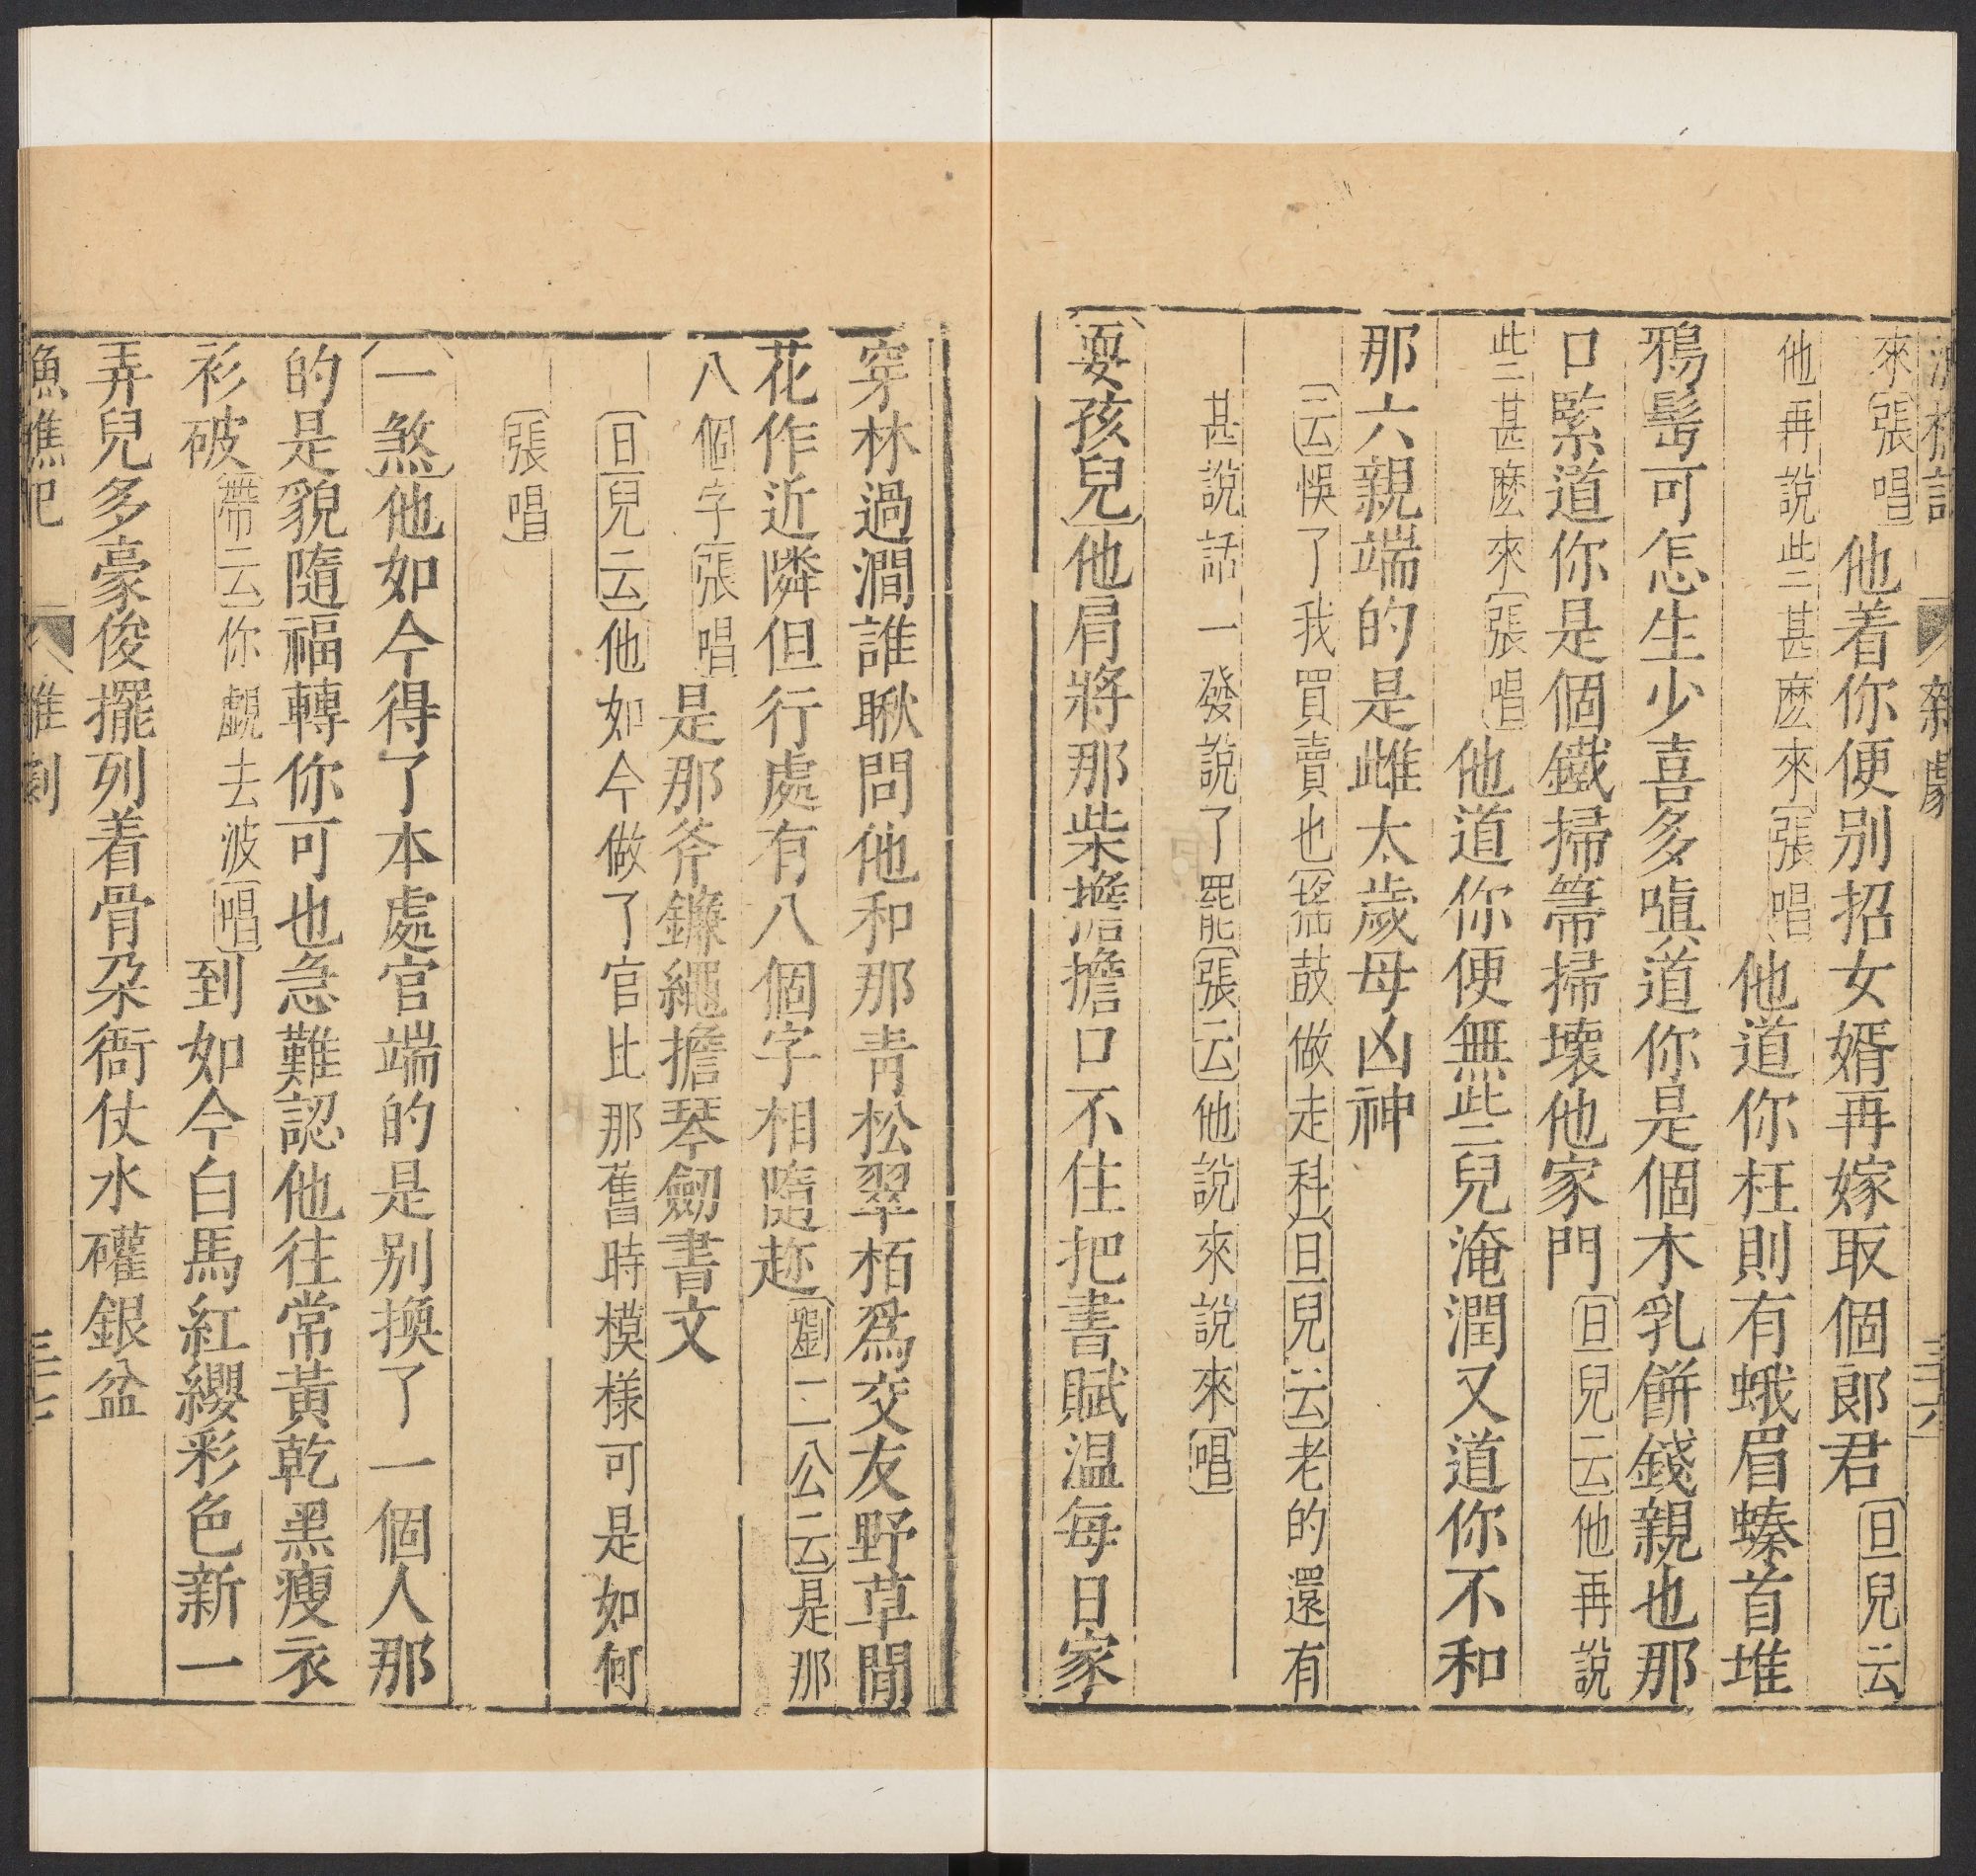 雜劇
三十六
來〔張唱〕他着你便別招女婿再嫁取個郎君〔旦兒云〕
他再說些甚麽來〔張唱〕他道你枉則有蛾眉螓首堆
鴉髻可怎生少喜多嗔道你是個木乳餅錢親也那
口緊道你是個鐵掃箒掃壞他家門〔旦兒云〕他再說
些甚麽來〔張唱〕他道你便無些兒淹潤又道你不和
那六親端的是雌太歲母凶神
〔云〕悞了我買賣也〔搖鼓做走科〕〔旦兒云〕老的還有
甚說話一發說了罷〔張云〕他說來說來〔唱〕
〔耍孩兒〕他肩將那柴擔擔口不住把書賦温每日家
穿林過澗誰瞅問他和那靑松翠栢爲交友野草閒
花作近隣但行處有八個字相隨趂〔劉二公云〕是那
八個字〔張唱〕是那斧鐮繩擔琴劒書文
〔旦兒云〕他如今做了官比那舊時模樣可是如何
〔張唱〕
〔一煞〕他如今得了本處官端的是别換了一個人那
的是貌隨福轉你可也急難認他往常黃乾黑瘦衣
衫破〔帶云〕你覷去波〔唱〕到如今白馬紅纓彩色新一
弄兒多豪俊擺列着骨朶衙仗水礶銀盆
漁樵記
雜劇
三十七